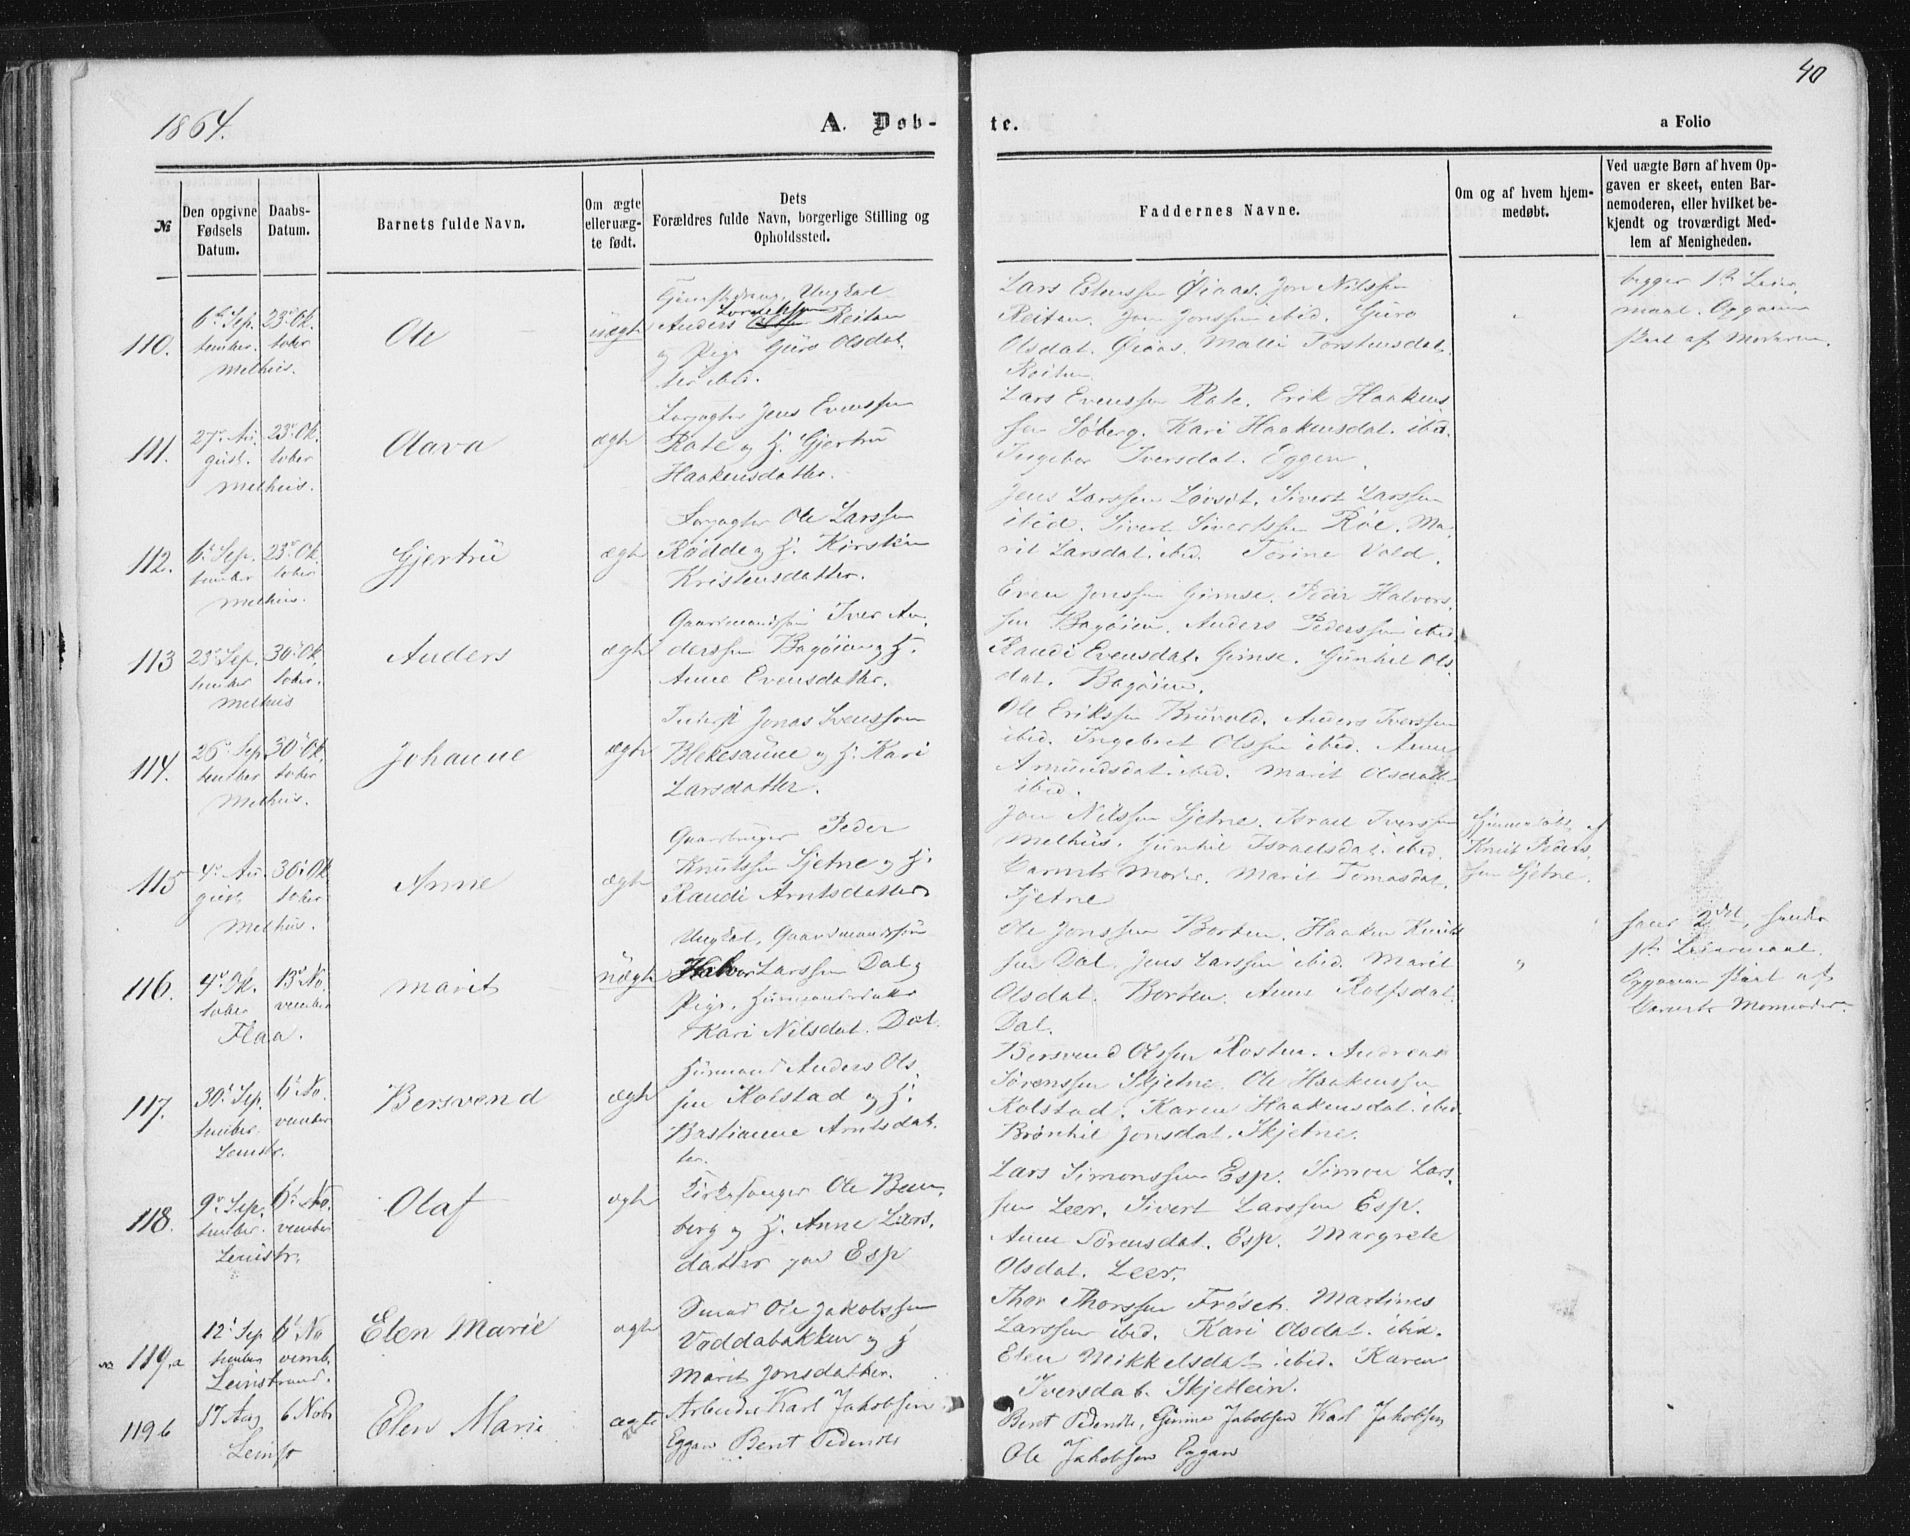 40
1864.
A. Døb-
te.
a Folio
№
Den opgivne Fødsels Datum.
Daabs-Datum.
Barnets fulde Navn.
Om ægte eller uæg-te født.
Dets Forældres fulde Navn, borgerlige Stilling og Opholdssted.
Faddernes Navne.
Om og af hvem hjem-medøbt.
Ved uægte Børn af hvem Op-gaven er skeet, enten Bar-nemoderen, eller hvilket be-kjendt og troværdigt Med-lem af Menigheden.
110.
6te Sep.
tember.
23de Ok.
tober
Melhus.
Ole
uægte
Ungkarl
Anders Reitan
og Pige Guro Olsdat.
ter ibid.
Lars Estenssen Øiaas. Jon Nilssen
Reitan. Jon Jonssen ibid. Guro
Olsdat. Øiaas. Malli Torstensdat.
Reitan
begges 1ste Leier
maal. Opgaven
skeet af Moderen.
111.
27de Au
gust.
23de Ok.
tober
Melhus.
Olava
ægte
Jens Evenssen
Rate og H. Gjertru
Haakensdatter.
Lars Evenssen Rate. Erik Haakens
sen Søberg. Kari Haakensdat. ibid.
Ingebor Iversdat. Eggen.
112.
6te Sep.
tember
23de Ok.
tober
Melhus.
Gjertru
ægte
Ole Larssen
Rødde og H. Kirsten
Kristensdatter.
Jens Larssen Løvset. Sivert Larssen
ibid. Sivert Sivertssen Røe. Ma-
rit Larsdat. ibid. Torine Vold.
113
tember
30te Ok.
tober.
Melhus
Anders
ægte
Gaardmandssøn Iver An
derssen Bagøien og H.
Anne Evensdatter.
Even Jonssen Gimse. Peder Halvors.
sen Bagøien. Anders Pederssen ibid
Randi Evensdat. Gimse. Gunhil Ols
dat. Bagøien.
114.
26de Sep
tember
30te Ok.
tober
Melhus.
Johanne
ægte
Inderst Jonas Svenssen
Blekesaune og H. Kari
Larsdatter.
Ole Erikssen Bruvold. Anders Iverssen
ibid. Ingebret Olssen ibid. Anne
Amundsdat. ibid. Marit Olsdatt
ibid.
115
4de Au.
gust
30te Ok
tober
Melhus.
Anne
ægte
Gaardbruger Peder
Knutssen Gjetne og H.
Randi Arntsdatter
Jon Nilssen Gjetne. Israel Iverssen
Melhus. Gunhil Israelsdat. ibid.
Barnets Moder. Marit Tomasdat.
Gjetne
Hjemmedøbt af
Knut Peders.
sen Gjetne.
116.
4de Ok.
tober
13de No.
vember
Flaa.
Marit
uægte
Ungkal, Gaardmandssøn
Halvor Larssen Dal og
Pige, Husmandsdatter
Kari Nilsdat. Dal.
Ole Jonssen Borten. Haaken Knuts
sen Dal. Jens Larssen ibid. Marit
Olsdat. Borten. Anne Rolfsdat.
Dal.
hans 2det, hendes
1ste Leiermaal.
Opgaven skeet af
Barnets Mormoder.
117.
30te Sep.
tember
6te No.
vember
Leinstr.
Bersvend
ægte
Husmand Anders Ols.
sen Kolstad og H.
Bastianne Arntsdat.
ter.
Bersvend Olssen Rosten. Andreas
Sørenssen Skjetne. Ole Haakenssen
Kolstad. Karen Haakensdat. ibid
Brønhil Jonsdat. Skjetne.
118.
9de Sep.
tember.
6te No.
vember
Leinstr.
Olaf
ægte
Kirkesanger Ole Bern.
berg og H. Anne Lars.
datter paa Esp
Lars Simonssen Esp. Simon Lars.
sen Leer. Sivert Larssen Esp.
Anne Sørensdat. Esp. Margrete
Olsdat. Leer.
119.a
12te Sep
tember
6te No
vemb.
Leinstrand.
Elen Marie
ægte
Smed Ole Jakobssen
Vaddabakken og H
Marit Jonsdatter.
Thor Thorssen Frøset. Martines
Larssen ibid. Kari Olsdat. ibid.
Elen Mikkelsdat. ibid. Karen
Iversdat. Skjetlein.
119b
17 Aug
6 Novbr
Leinst
Elen Marie
ægte
Arbeider Karl Jakobsen
Eggan Berit Pedersdtr
Berit Pedersdtr, Jakobsen Karl Jakobsen
Ole Jakobsen Eggan